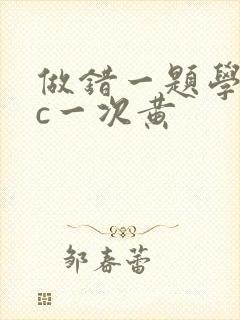 做錯一題學
c一次黃
鄒春蕾